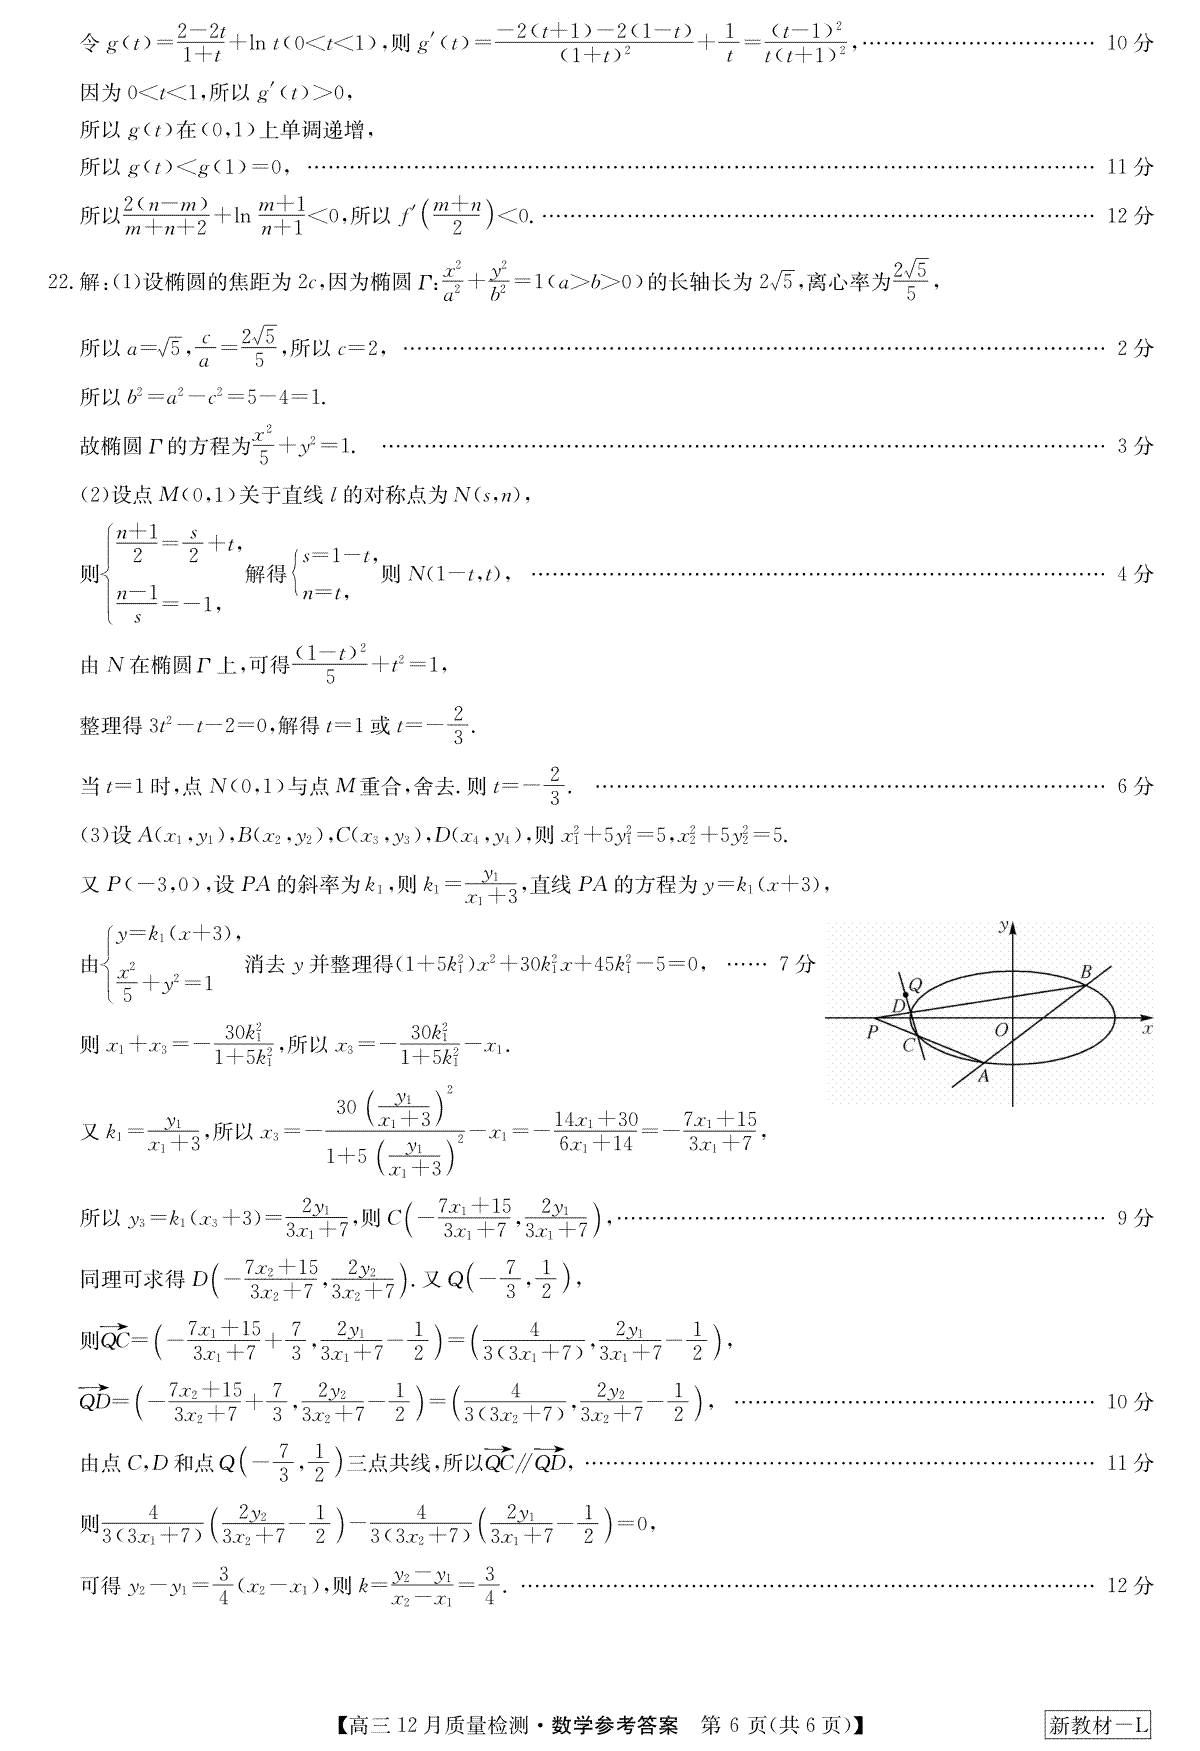 令 g(t)=\frac{2-2t}{1+t}+ln t(0<t<1),则 g′(t)=\frac{-2(t+1)-2(1-t)}{(1+t)^2}+\frac{1}{t}=\frac{(t-1)^2}{t(t+1)^2},…… 10 分
因为 0<t<1,所以 g′(t)>0,
所以 g(t)在(0,1)上单调递增,
所以 g(t)<g(1)=0, …… 11 分
所以\frac{2(n-m)}{m+n+2}+ln \frac{m+1}{n+1}<0,所以 f′(\frac{m+n}{2})<0. …… 12 分
22. 解:(1)设椭圆的焦距为 2c,因为椭圆 Γ:\frac{x^2}{a^2}+\frac{y^2}{b^2}=1(a>b>0)的长轴长为 2√5,离心率为\frac{2√5}{5},
所以 a=√5,\frac{c}{a}=\frac{2√5}{5},所以 c=2, …… 2 分
所以 b²=a²-c²=5-4=1.
故椭圆 Γ 的方程为\frac{x^2}{5}+y²=1. …… 3 分
(2)设点 M(0,1)关于直线 l 的对称点为 N(s,n),
则{\frac{n+1}{2}=\frac{s}{2}+t, \frac{n-1}{s}=-1, 解得{s=1-t, n=t, 则 N(1-t,t), …… 4 分
由 N 在椭圆 Γ 上,可得\frac{(1-t)^2}{5}+t²=1,
整理得 3t²-t-2=0,解得 t=1 或 t=-\frac{2}{3}.
当 t=1 时,点 N(0,1)与点 M 重合,舍去. 则 t=-\frac{2}{3}. …… 6 分
(3)设 A(x₁,y₁),B(x₂,y₂),C(x₃,y₃),D(x₄,y₄),则 x₁²+5y₁²=5,x₂²+5y₂²=5.
又 P(-3,0),设 PA 的斜率为 k₁,则 k₁=\frac{y₁}{x₁+3},直线 PA 的方程为 y=k₁(x+3),
由{y=k₁(x+3), \frac{x^2}{5}+y²=1 消去 y 并整理得(1+5k₁²)x²+30k₁²x+45k₁²-5=0, …… 7 分
y
Q
B
D
P
O
x
C
A
则 x₁+x₃=-\frac{30k₁²}{1+5k₁²},所以 x₃=-\frac{30k₁²}{1+5k₁²}-x₁.
又 k₁=\frac{y₁}{x₁+3},所以 x₃=-\frac{30(\frac{y₁}{x₁+3})^2}{1+5(\frac{y₁}{x₁+3})^2}-x₁=-\frac{14x₁+30}{6x₁+14}=-\frac{7x₁+15}{3x₁+7},
所以 y₃=k₁(x₃+3)=\frac{2y₁}{3x₁+7},则 C(-\frac{7x₁+15}{3x₁+7},\frac{2y₁}{3x₁+7}),…… 9 分
同理可求得 D(-\frac{7x₂+15}{3x₂+7},\frac{2y₂}{3x₂+7}). 又 Q(-\frac{7}{3},\frac{1}{2}),
则\overrightarrow{QC}=(-\frac{7x₁+15}{3x₁+7}+\frac{7}{3},\frac{2y₁}{3x₁+7}-\frac{1}{2})=(\frac{4}{3(3x₁+7)},\frac{2y₁}{3x₁+7}-\frac{1}{2}),
\overrightarrow{QD}=(-\frac{7x₂+15}{3x₂+7}+\frac{7}{3},\frac{2y₂}{3x₂+7}-\frac{1}{2})=(\frac{4}{3(3x₂+7)},\frac{2y₂}{3x₂+7}-\frac{1}{2}), …… 10 分
由点 C,D 和点 Q(-\frac{7}{3},\frac{1}{2})三点共线,所以\overrightarrow{QC}∥\overrightarrow{QD}, …… 11 分
则\frac{4}{3(3x₁+7)}(\frac{2y₂}{3x₂+7}-\frac{1}{2})-\frac{4}{3(3x₂+7)}(\frac{2y₁}{3x₁+7}-\frac{1}{2})=0,
可得 y₂-y₁=\frac{3}{4}(x₂-x₁),则 k=\frac{y₂-y₁}{x₂-x₁}=\frac{3}{4}. …… 12 分
【高三 12 月质量检测·数学参考答案 第 6 页(共 6 页)】
新教材-L